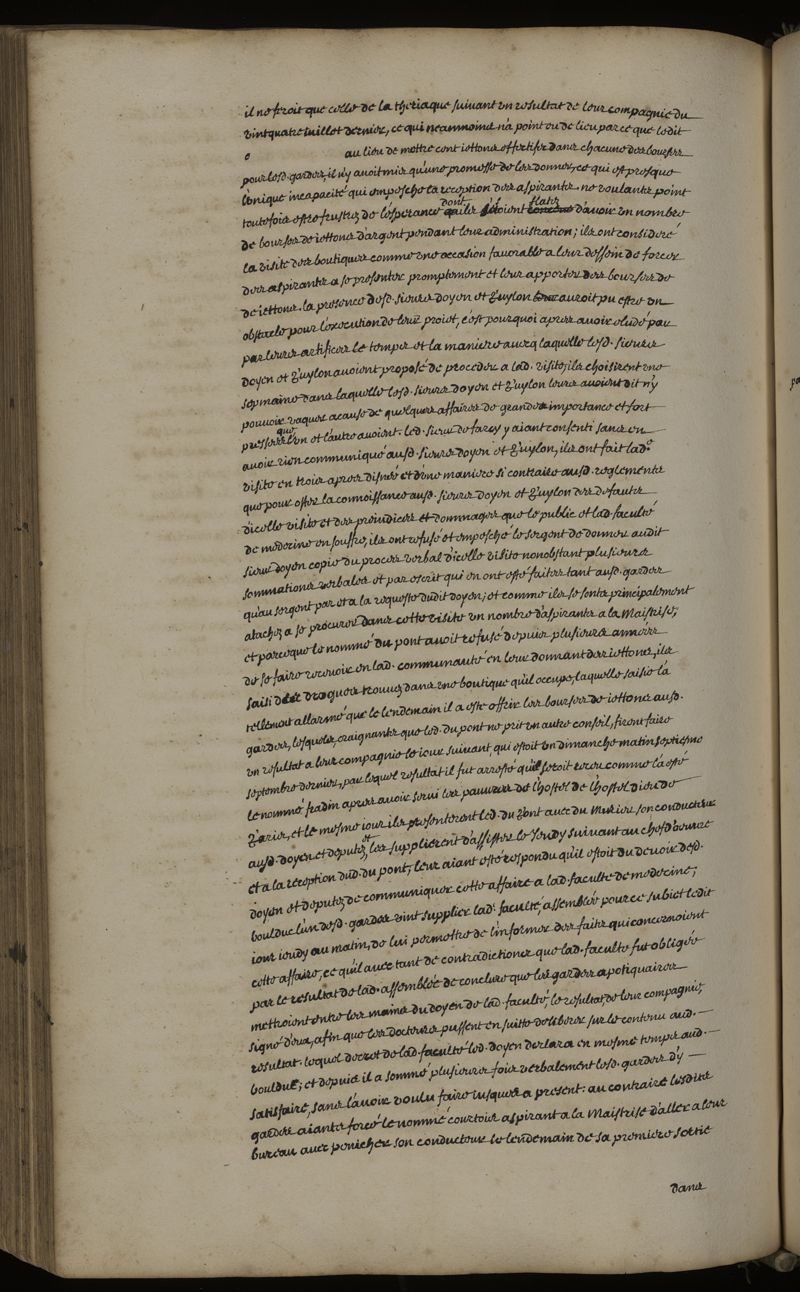 il ne feroit que celle de la theriaque suivant un resultat de leur compagnie du
vint quatre iuillet dernier, ce qui neanmoins n'a point eu de lieu parce que ledit
au lieu de mettre cent iettons effectifs dans chacune des bourses
pour lesd. gardes, il n'y avoit mis qu'une promesse de les donner, ce qui est presque
l'unique incapacité qui empesche la reception des aspirants. ne voulants point
toutefois estre frustez de l'esperance dont ils s'estoient flatez d'avoir un nombre
de bourses de iettons d'argent pendant leur administration; ils ont consideré
la visite des boutiques comme une occasion favorable a leur dessein de forcer
des aspirants a se presenter promptement et leur apporter des bourses de
de iettons. la presence desd. sieurs doyen et Guylon auroit pu estre un
obstacle pour l'execution de leur proiet, c'est pourquoi apres avoir eludé par
par leurs artifices le temps et la maniere avec laquelle lesd. sieurs
doyen et Guylon avoient proposé de proceder a lad. visite, ils choisirent une
sepmaine dans laquelle lesd. sieurs doyen et Guylon leurs avoient dit n'y
pouvoir vaquer a cause de quelques affaires de grande importance et fort
pressées que l'un et l'autre avoient. led. sieur de farcy y aiant consenti sans en
avoir rien communiqué ausd. sieurs doyen et Guylon, ils ont fait lad.e
visite en trois apres disnés et d'une maniere si contraire ausd. reglements
que pour oster la connoissance ausd. sieurs doyen et Guylon des defauts
d'icelle visite et des preiudices et dommages que le public et lad. faculté
de medecine en souffre, ils ont refusé et empesché le sergent de donner audit
sieur doyen copie du proces verbal d'icelle visite nonobstant plusieurs
sommations verbales et par escrit qui en ont esté faites tant ausd. gardes
qu'au sergent par et a la requeste dudit doyen; et comme ils se sont principalement
atachez a se procurer dans cette visite un nombre d'aspirants a la Maistrise,
et parceque le nommé du pont avoit refusé depuis plusieurs années
de se faire recevoir en lad. communauté en leur donnant des iettons, ils
saisi des drogues trouvez dans une boutique qu'il occupe, laquelle saisie l'a
tellement allarmé que le lendemain il a esté offrir les bourses de iettons ausd.
gardes, lesquels, craignants que led. du pont ne prit un autre conseil, firent faire
un resultat a leur compagnie le iour suivant, qui estoit un dimanche matin septiesme
septembre dernier, par lequel resultat il fut arresté qu'il seroit receu comme l'a esté
le nommé fradin apres avoir servi les pauvres de l'hostel de l'hostel dieu de
Paris, et le mesme iour ils presenterent led. du pont avec du Murier son conducteur
ausd. doyen et deputez, et les supplierent d'assister le Jeudy suivant au chef d'oeuvre
et a la reception dud. du pont, leur aiant esté respondu qu'il estoit du devoir desd.
doyen et deputez de communiquer cette affaire a lad. faculté de medecine;
boulduc l'un desd. gardes vint supplier lad. faculté, assemblée pour ce subiet ledit
iour ieudy au matin, de lui permettre de l'informer des faits qui concernoient
cette affaire, ce qu'il avec tant de contradictions que lad. faculté fut obligée
par le resultat de lad. assemblée de conclure que les gardes apotiquaires
mettroient entre les mains du doyen de lad. faculté, le resultat de leur compagnie,
signé d'eux, afin que les docteurs pussent en suitte deliberer sur le contenu aud.
resultat. lequel decret de lad. faculté led. doyen declara en mesme temps aud.
boulduc; et depuis il a sommé plusieurs fois verbalement lesd. gardes d'y
satisfaire, sans l'avoir voulu faire iusques a present: au contraire lesdits
gardes aiants forcé le nommé courtois aspirant a la Maistrise d'aller a leur
bureau avec ponicher son conducteur le lendemain de sa premiere sortie
dans